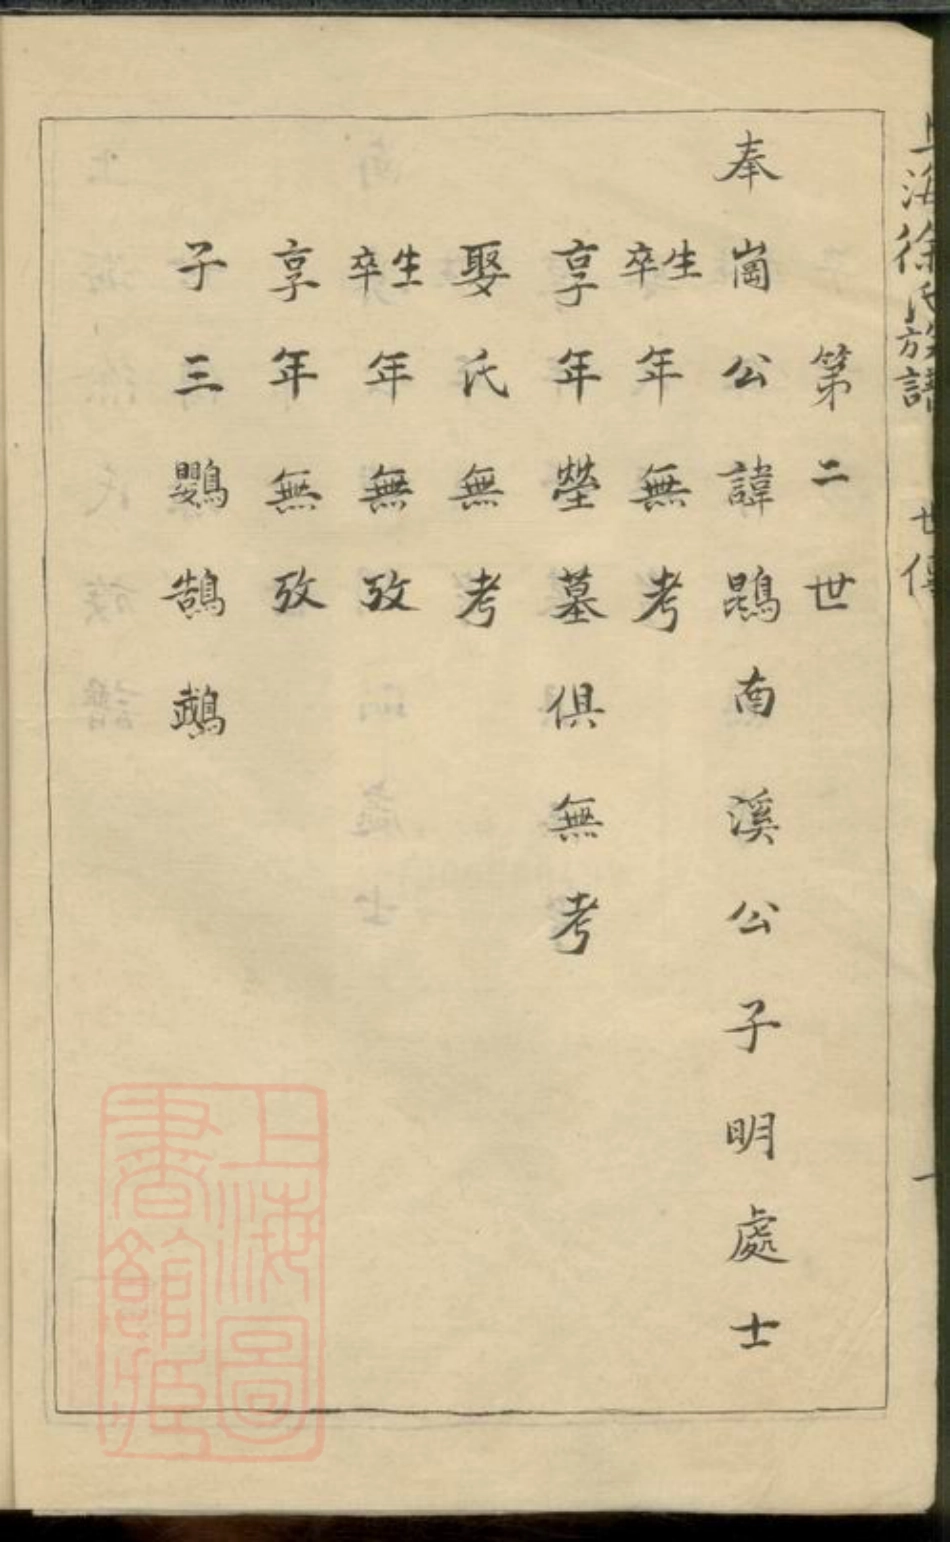 上海徐氏族譜 世傳 一
第二世
奉崗公諱鵾南溪公子明處士
生卒年無考
享年塋墓俱無考
娶氏無考
生卒年無攷
享年無攷
子三鸚鵠鵡
上海圖
書館藏